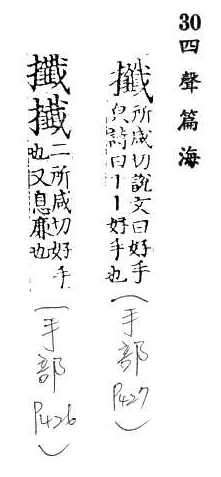 30 四聲篇海
攕所咸切說文曰好手
皃詩曰丨丨好手也
(手部 P427)
攕𢵧二所咸切好手
也又息廉也
(手部 P426)